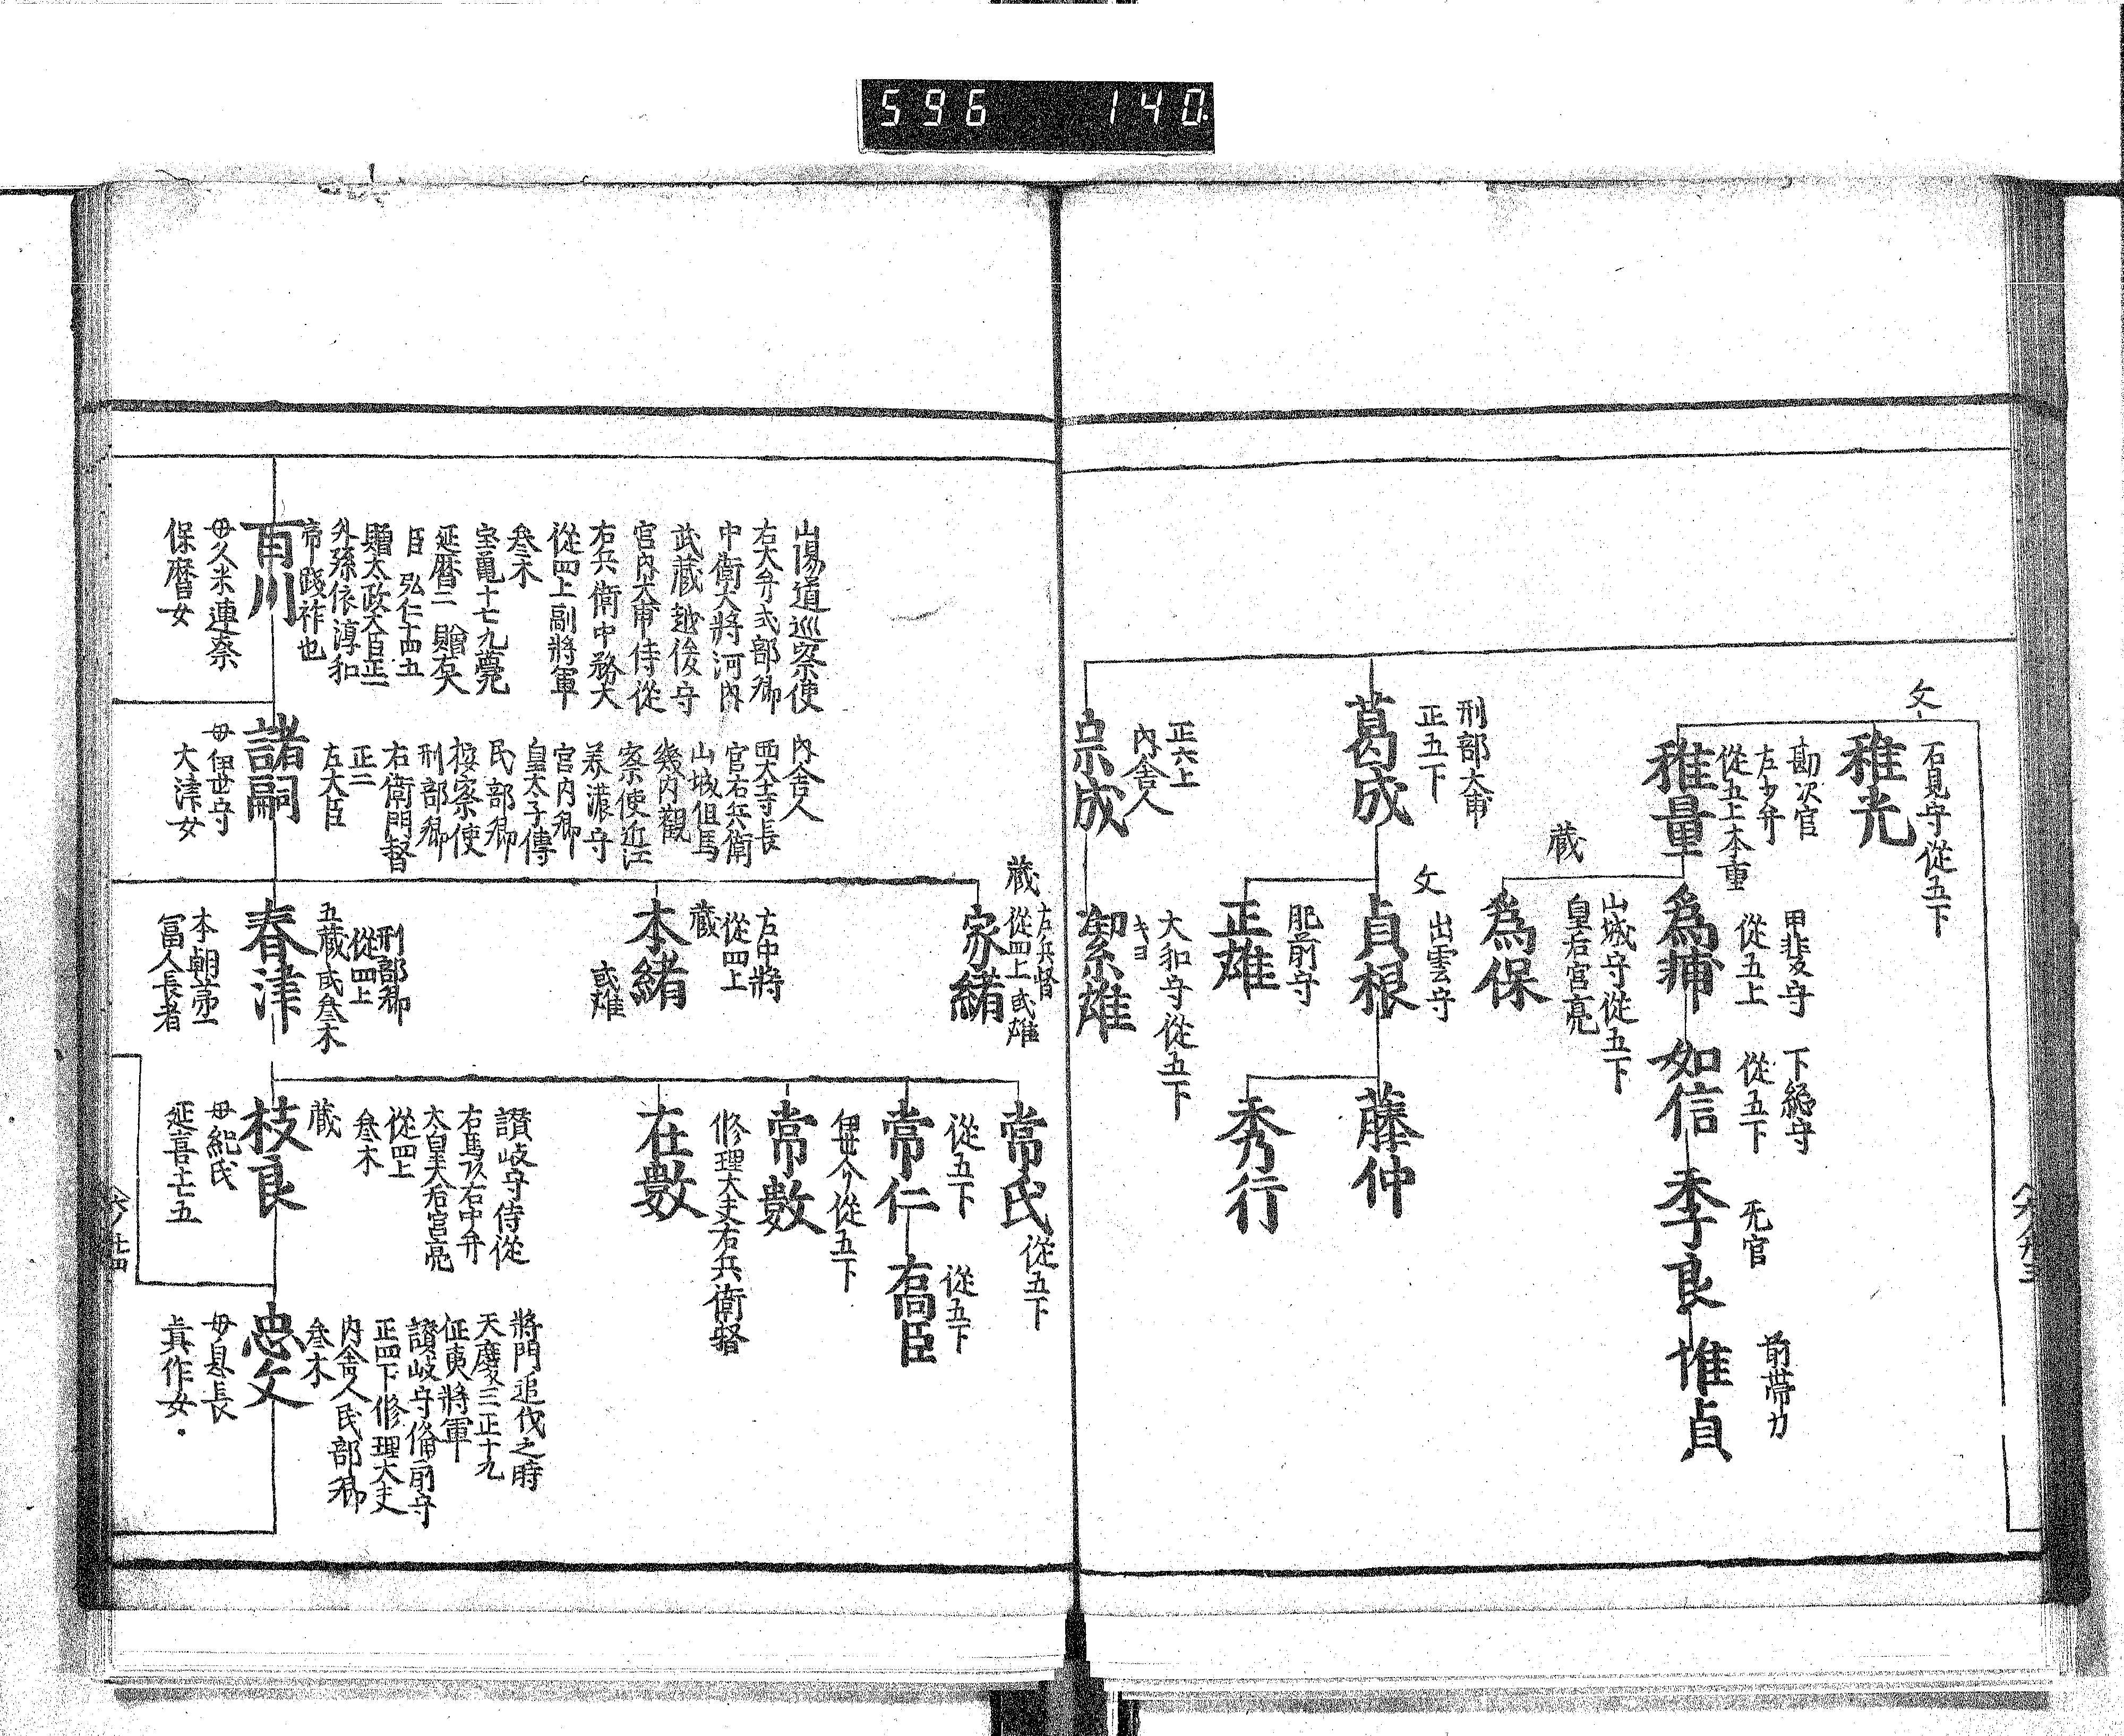 596 140
文
石見守從五下
稚光
勘次官
左少弁
從五上本重
稚量
甲斐守
從五上
為輔
下総守
從五下
如信
无官
季良
前帯刀
惟貞
蔵
山城守從五下
皇后宮亮
為保
刑部大甫
正五下
葛成
文
出雲守
貞根
藤仲
肥前守
正雄
秀行
正六上
内舎人
宗成
大和守從五下
キヨ
絜雄
蔵
左兵督
從四上或雄
家緒
常氏
從五下
從五下
常仁
從五下
高臣
伊世介從五下
常數
修理大夫右兵衛督
在數
左中将
從四上
蔵
本緒
或雄
山陽道巡察使
右大弁式部卿
中衛大将河内
武蔵越後守
宮内大甫侍從
右兵衛中務大
從四上副將軍
叄木
宝亀十七九薨
延暦二贈右大
臣 弘仁十四五
贈太政大臣正一
外孫依淳和
帝踐祚也
百川
母久米連奈
保暦女
内舎人
西大寺長
官右兵衛
山城但馬
幾内觀
察使近江
美濃守
宮内卿
皇太子傳
民部卿
按察使
刑部卿
右衛門督
正二
左大臣
諸嗣
母伊世守
大津女
刑部卿
從四上
五蔵或叄木
春津
本朝第一
冨人長者
讃岐守侍從
右馬以右中弁
太皇大后宮亮
從四上
叄木
蔵
枝良
母紀氏
延喜十七五
將門追伐之時
天慶三正十九
征夷將軍
讃岐守備前守
正四下修理大夫
内舎人民部卿
叄木
忠文
母息長
真作女